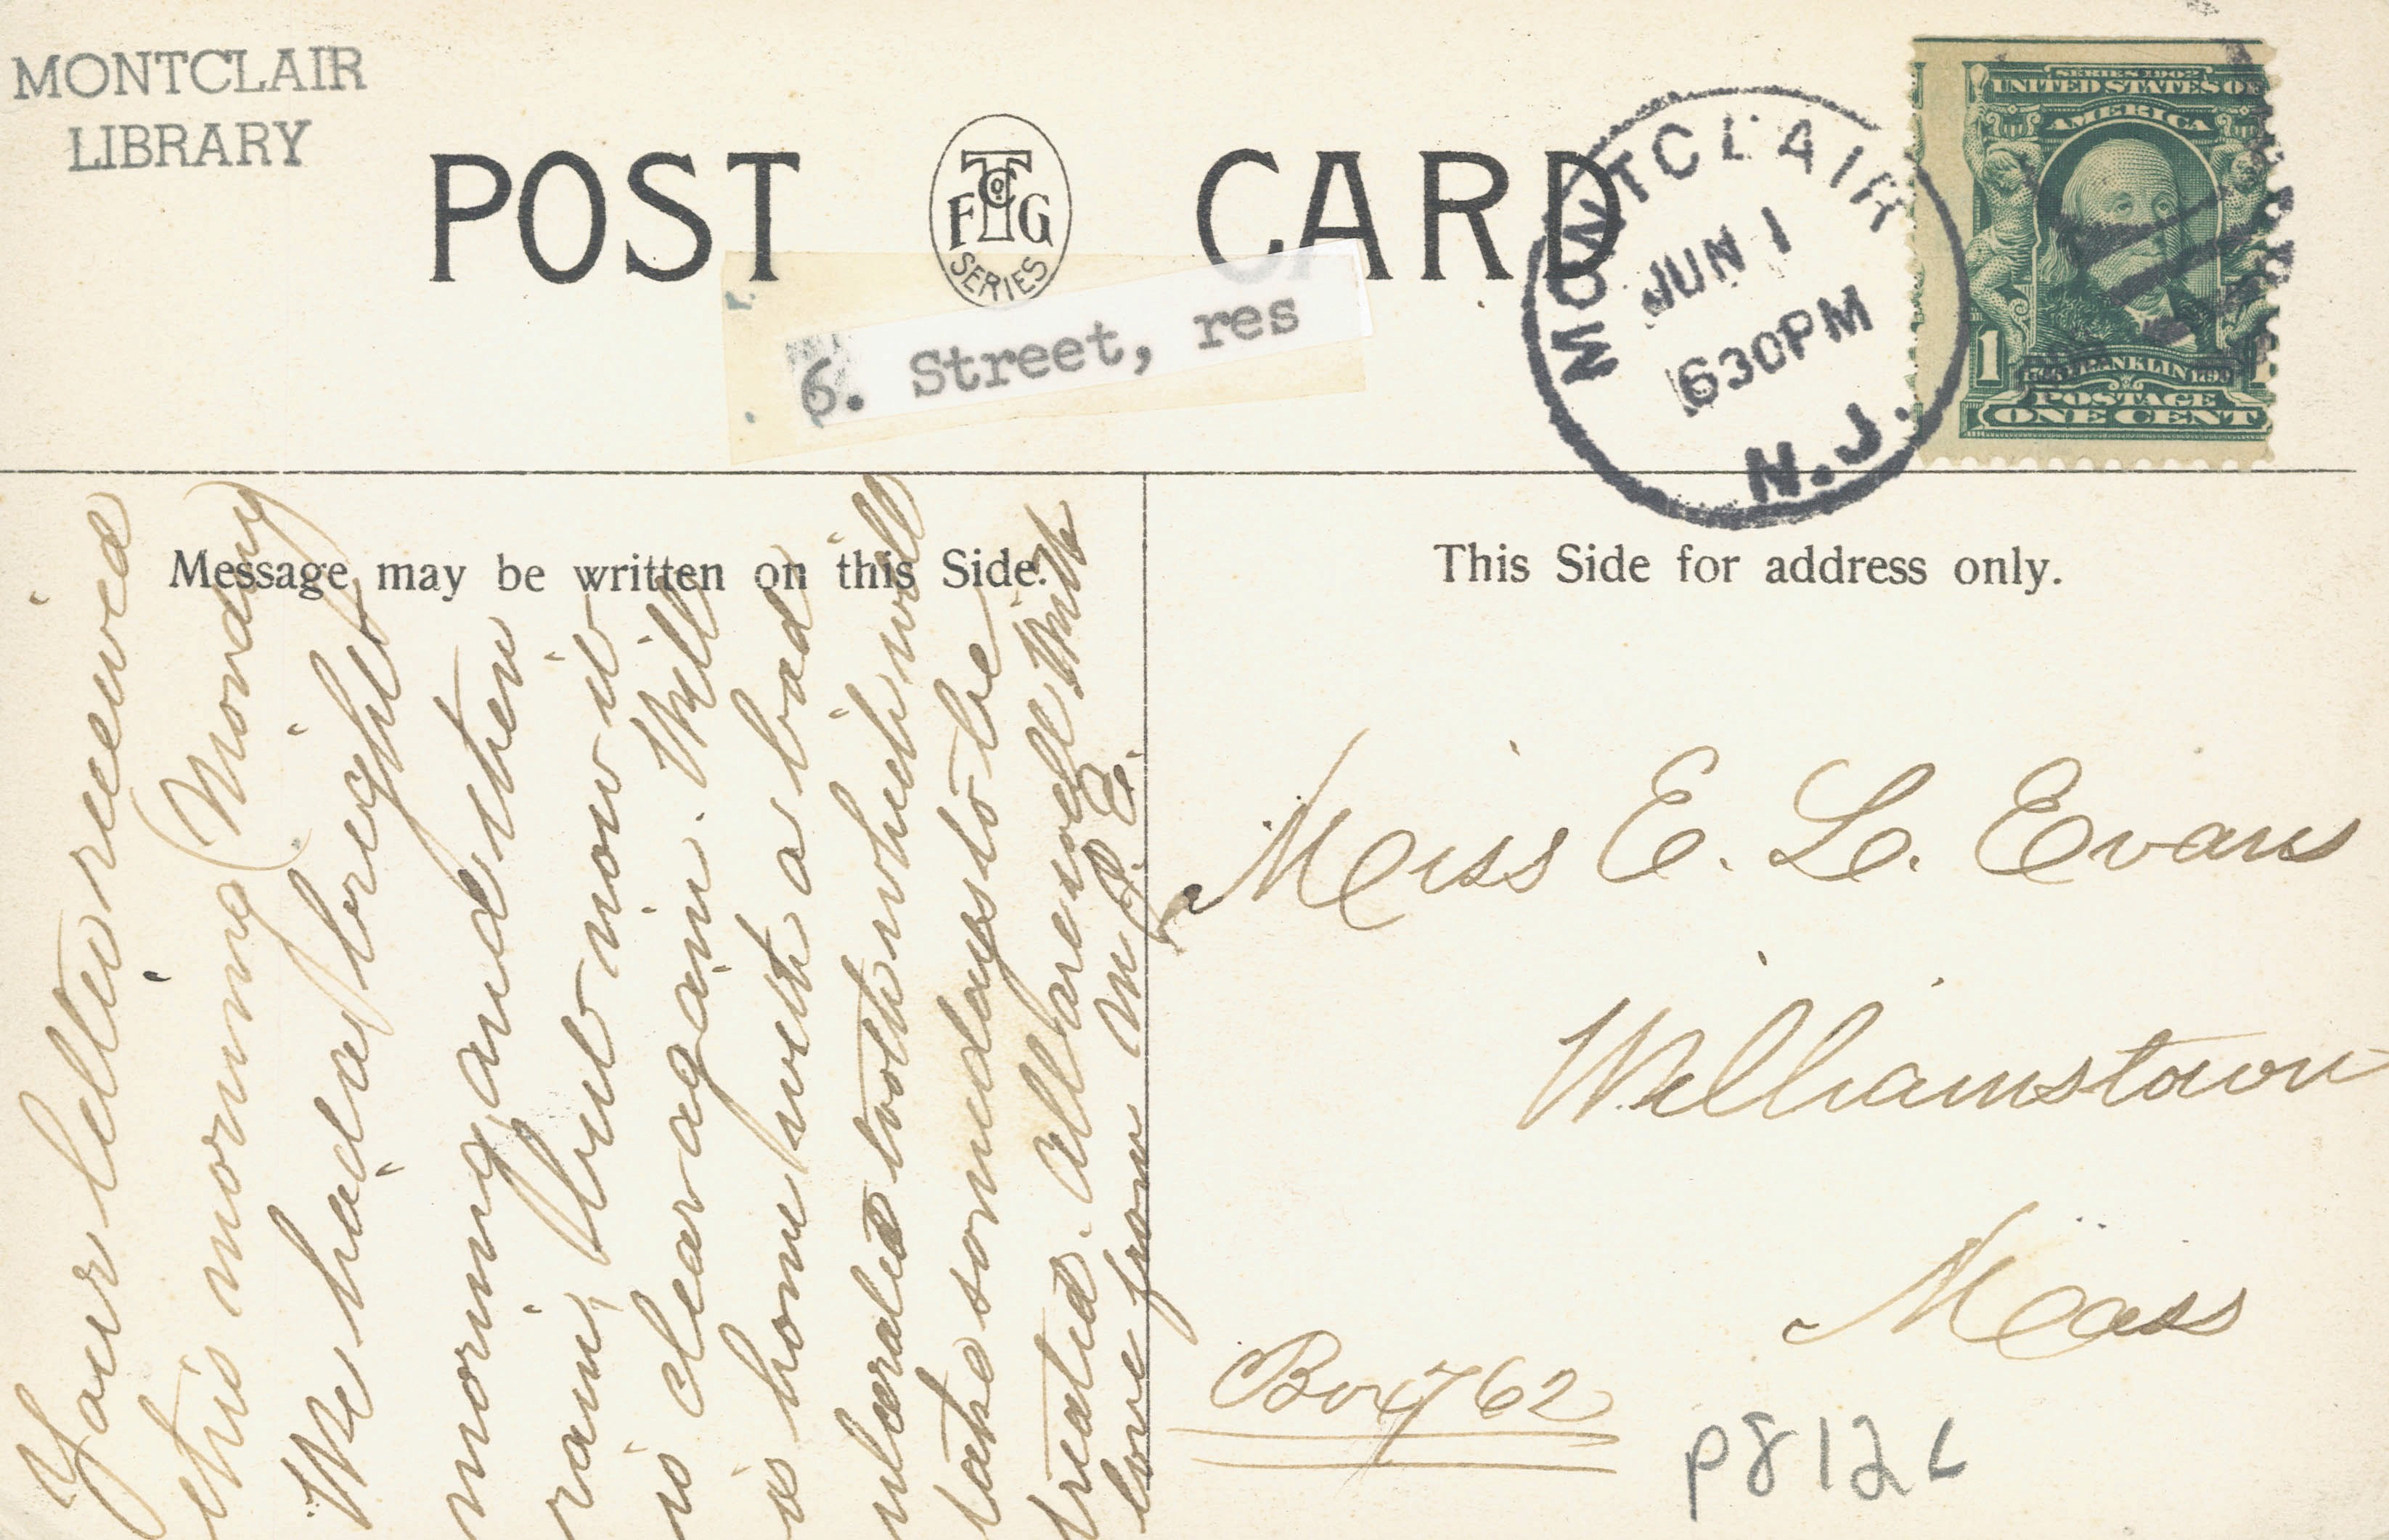 MONTCLAIR
LIBRARY
POST CARD
F T Co G
SERIES
6. Street, res
MONTCLAIR
JUN 1
630PM
N.J.
SERIES 1902
UNITED STATES OF
AMERICA
1
FRANKLIN
POSTAGE
ONE CENT
Message may be written on this Side.
This Side for address only.
Your letter received
this morning (Monday)
We had a bright
morning and then
rain, but now it
is clear again. Will
is home with a bad
ulcerated tooth which will
take some days to be
treated. All are well with
love from M. L. E.
Miss E. L. Evans
Williamstown
Mass
Box 762
P812L